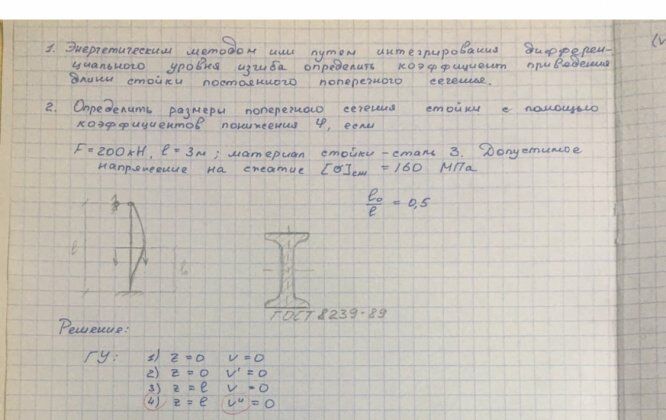 1. Энергетическим методом или путем интегрирования дифферен-
циального уровня изгиба определить коэффициент приведения
длины стойки постоянного поперечного сечения.
2. Определить размеры поперечного сечения стойки с помощью
коэффициентов понижения φ, если
F = 200 кН, l = 3 м; материал стойки - сталь 3. Допустимое
напряжение на сжатие [σ]сж = 160 МПа
l₀/l = 0,5
F
l
l₀
ГОСТ 8239-89
Решение:
ГУ: 1) z = 0 v = 0
2) z = 0 v' = 0
3) z = l v = 0
4) z = l v" = 0